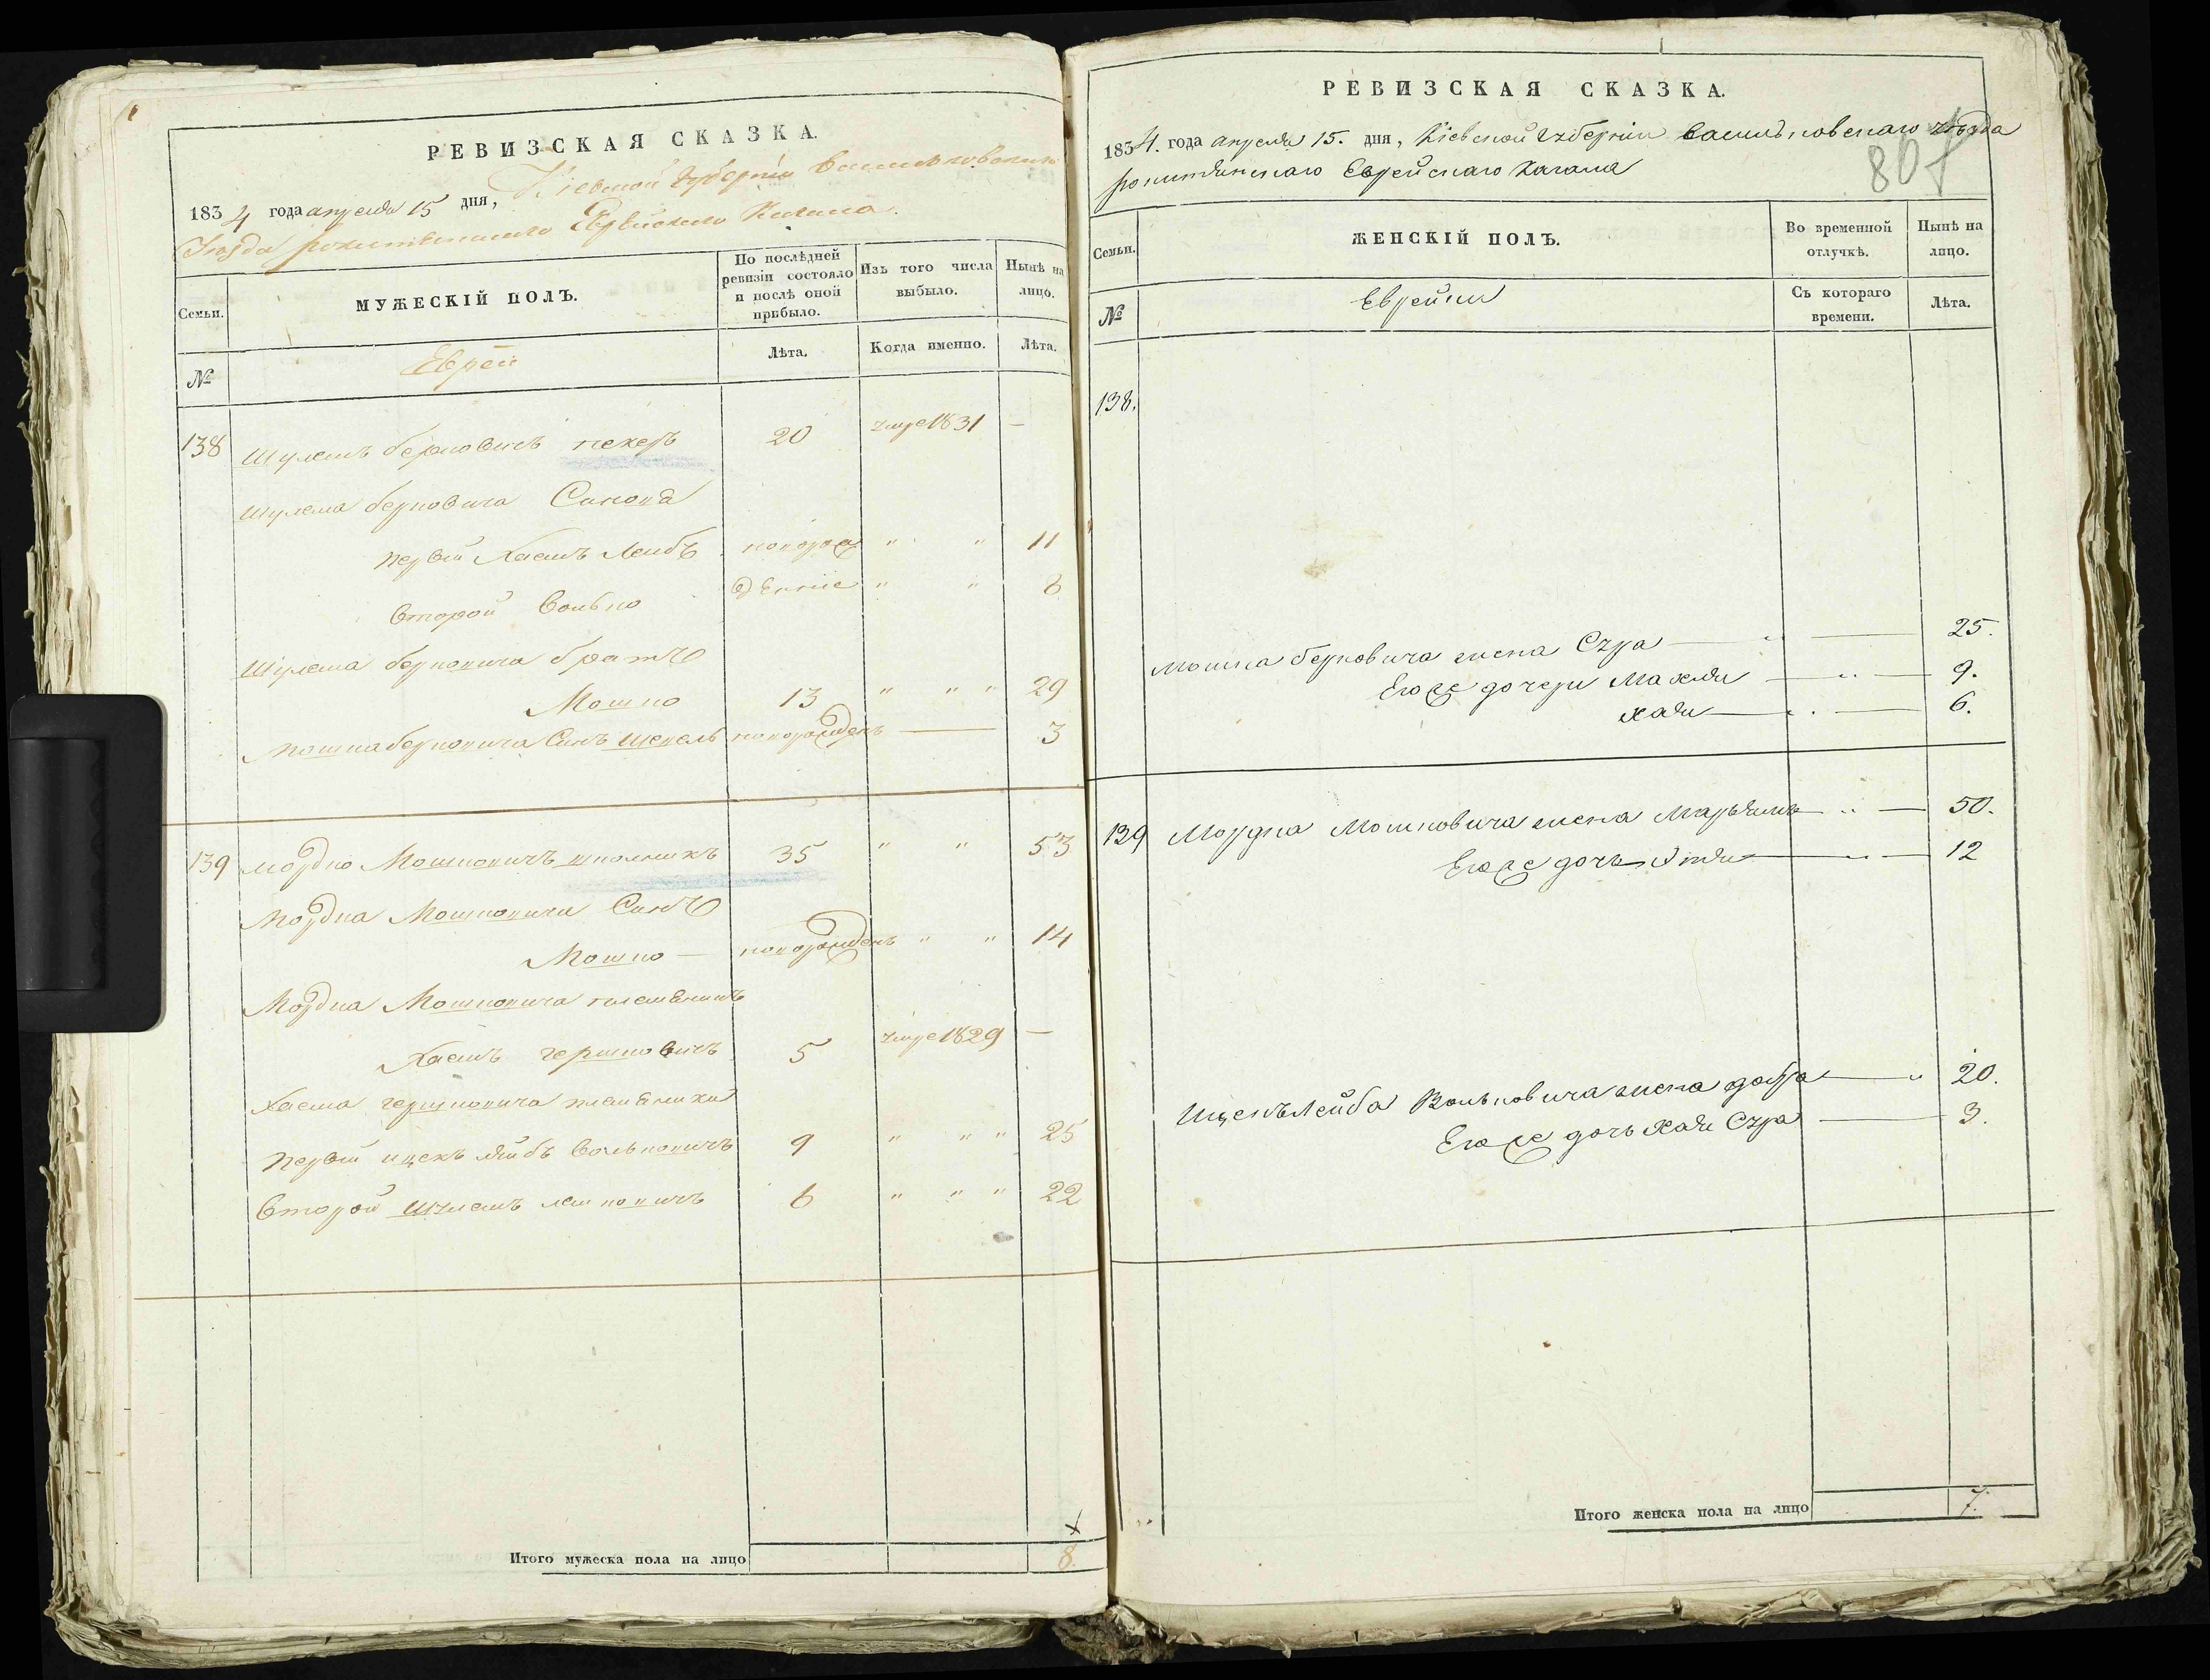 РЕВИЗСКАЯ СКАЗКА.
1834 года апреля 15 дня, Кіевской Губерніи Васильковскаго
Уѣзда рокитянскаго Еврейскаго Кагала.
Семьи.
МУЖЕСКІЙ ПОЛЪ.
По послѣдней ревизіи состояло и послѣ оной прибыло.
Изъ того числа выбыло.
Нынѣ на лицо.
№
Евреи
Лѣта.
Когда именно.
Лѣта.
138 Шулемъ берковичъ пекеръ 20 умре 1831 —
Шулема берковича Синовя
первий Хаемъ Лейбъ новорож " " 11
Второй Волько денніе " " 8
Шулема берковича братъ
Мошко 13 " " " 29
мошка берковича Синъ новорожденъ — 3
139 мордко Мошковичъ школникъ 35 " " 53
Мордка Мошковича Синъ
Мошко — новорожденъ " " 14
Мордка Мошковича племеникъ
Хаемъ гершковичъ 5 умре 1829 —
Хаема гершковича племеники
первий ицекъ лейбъ Вольковичъ 9 " " " 25
Второй Шулемъ 6 " " " 22
Итого мужеска пола на лицо 8.
РЕВИЗСКАЯ СКАЗКА.
1834. года апреля 15. дня, Кіевской Губерніи Васильковскаго уѣзда
рокитянскаго Еврейскаго Кагала
807
Семьи.
ЖЕНСКІЙ ПОЛЪ.
Во временной отлучкѣ.
Нынѣ на лицо.
№
Еврейки
Съ котораго времени.
Лѣта.
138.
Мошка берковича жена Сура — " — 25.
Его же дочери Махля — " — 9.
хая — " — 6.
139 Мордка Мошковича жена Марьямъ — " — 50.
Его же дочь — " — 12
Ицекъ Лейба Вольковича жена добра — " 20.
Его же дочь Хая Сура — 3.
Итого женска пола на лицо 7.